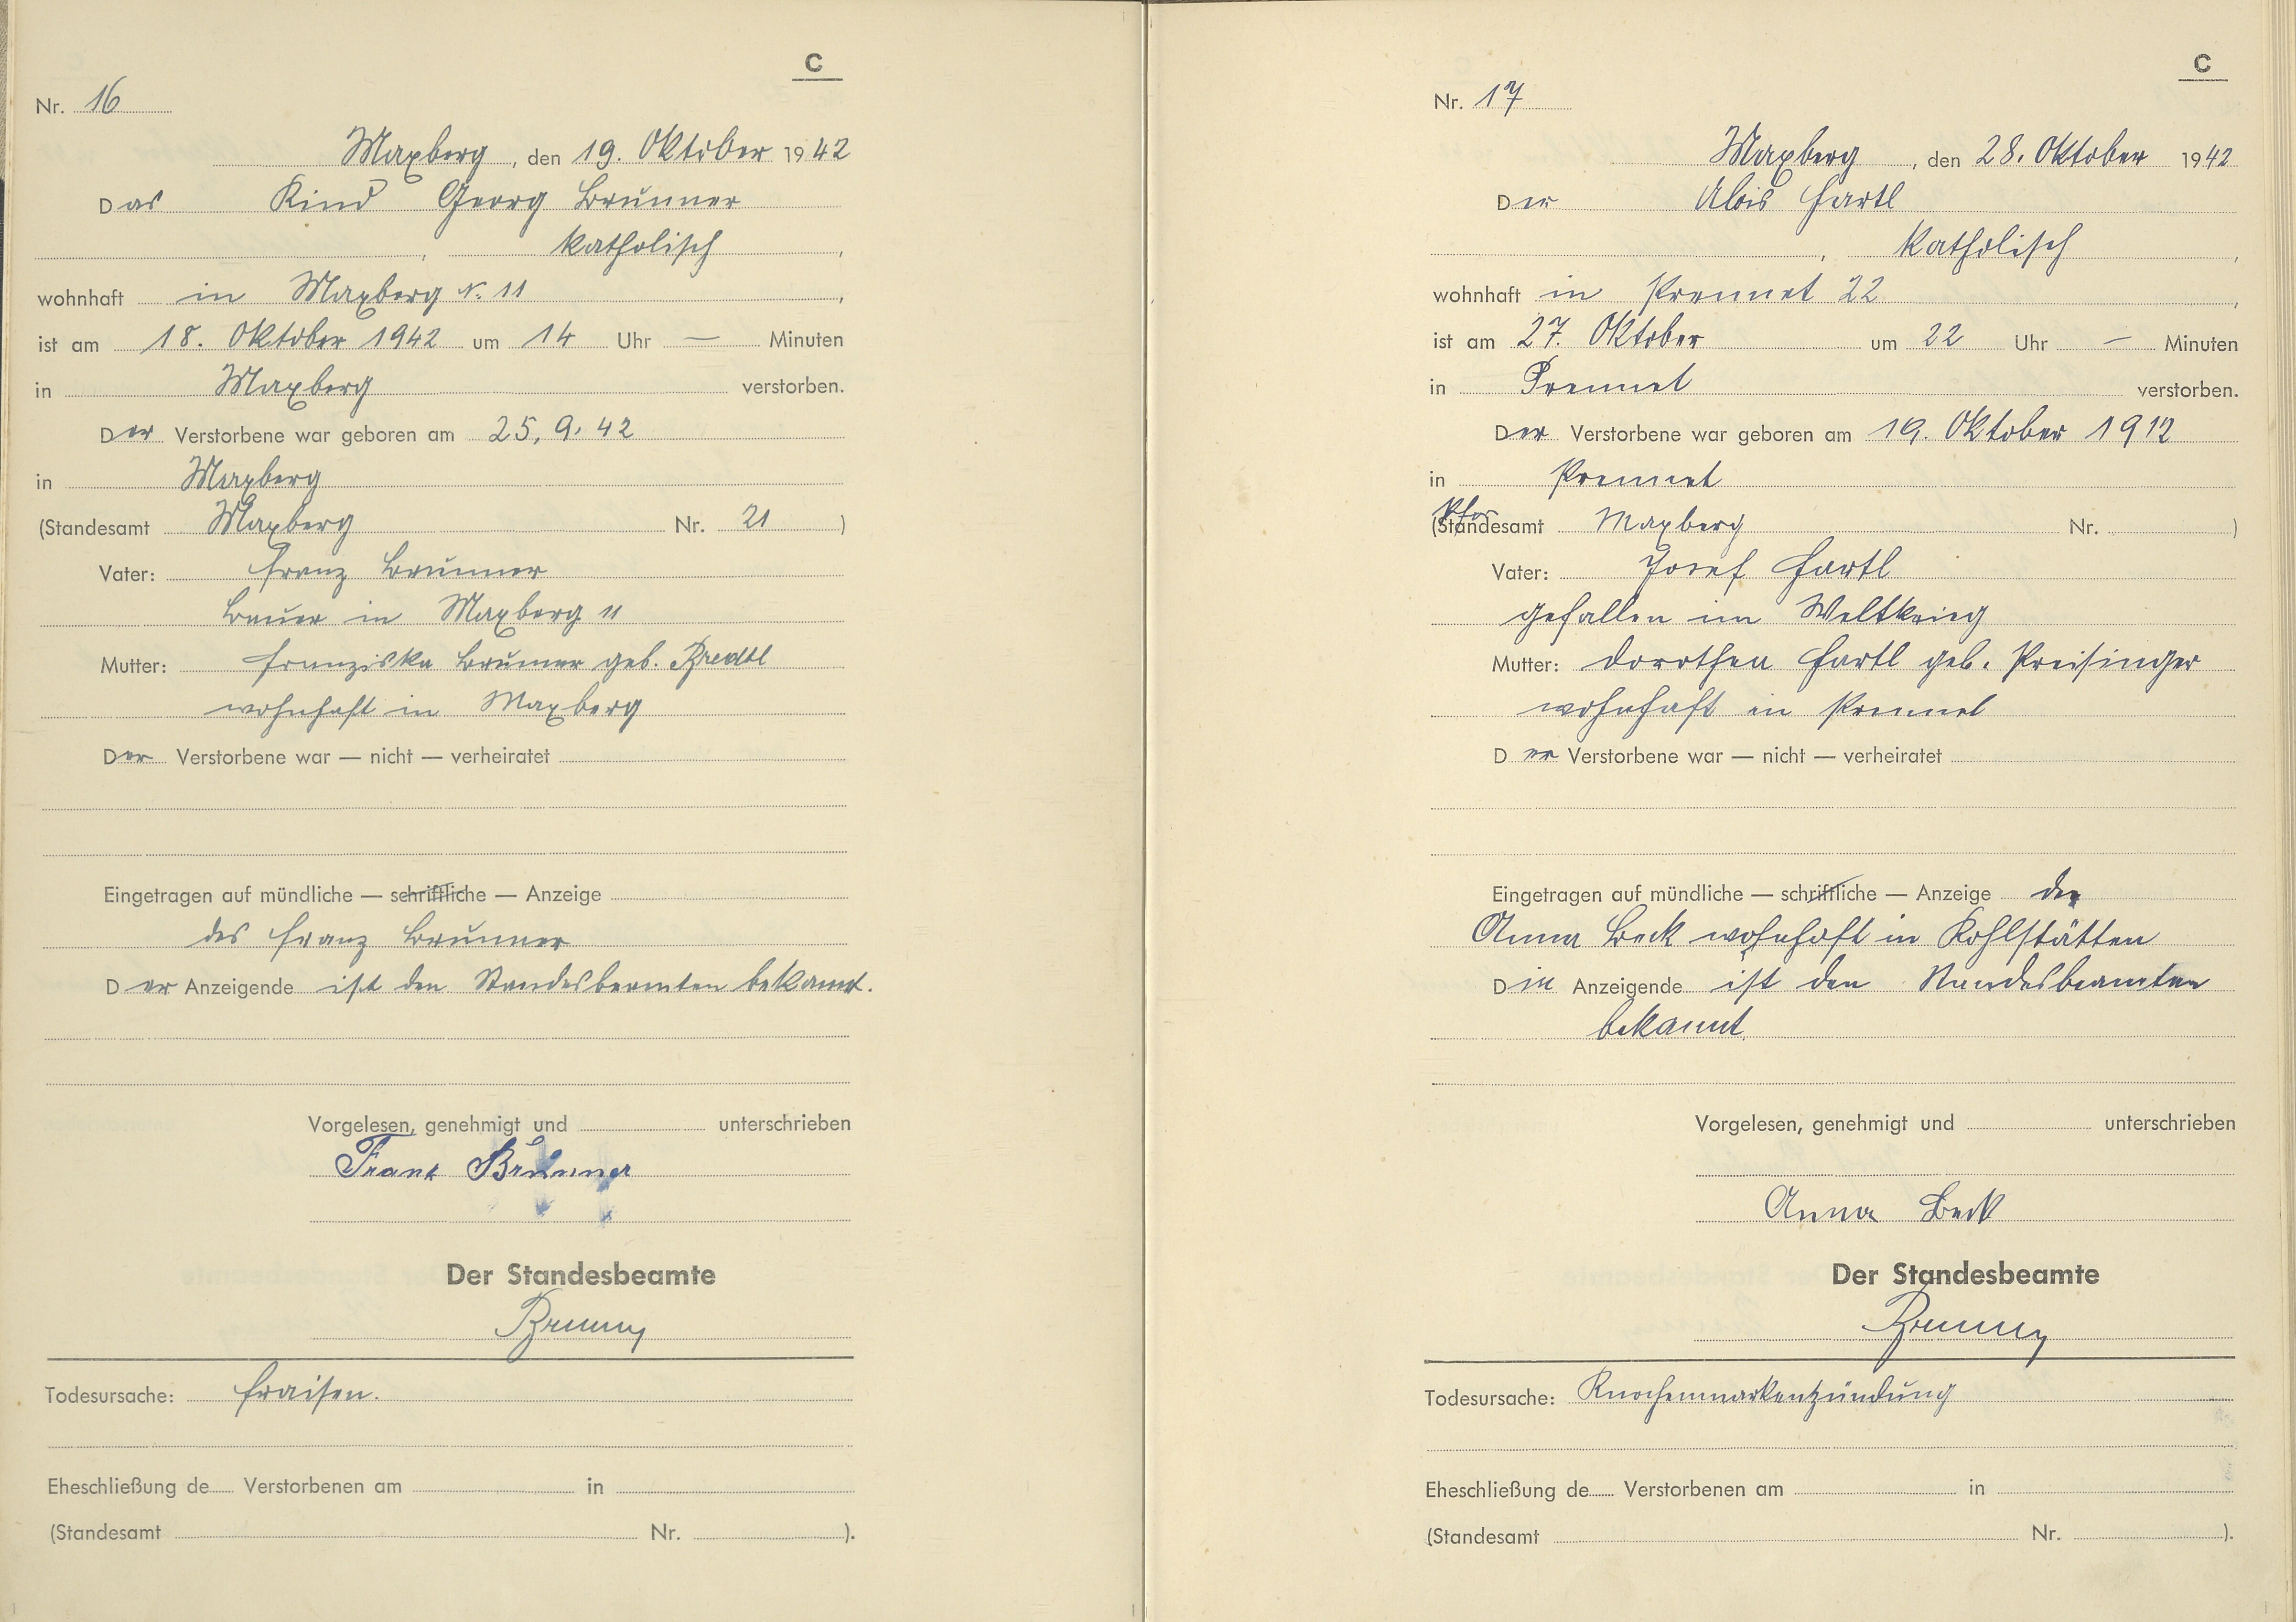 C
Nr. 16
Maxberg, den 19. Oktober 1942
Das Kind Georg Brunner
, katholisch,
wohnhaft in Maxberg N. 11,
ist am 18. Oktober 1942 um 14 Uhr — Minuten
in Maxberg verstorben.
Der Verstorbene war geboren am 25. 9. 42
in Maxberg
(Standesamt Maxberg Nr. 21)
Vater: Franz Brunner
Bauer in Maxberg 11
Mutter: Franziska Brunner geb. Bredtl
wohnhaft in Maxberg
Der Verstorbene war — nicht — verheiratet
Eingetragen auf mündliche — schriftliche — Anzeige
des Franz Brunner
Der Anzeigende ist den Standesbeamten bekannt.
Vorgelesen, genehmigt und unterschrieben
Franz Brunner
Der Standesbeamte
Todesursache: Fraisen.
Eheschließung de Verstorbenen am in
(Standesamt Nr. ).
C
Nr. 17
Maxberg, den 28. Oktober 1942
Der Alois Hartl
, katholisch,
wohnhaft in Prennet 22,
ist am 27. Oktober um 22 Uhr — Minuten
in Prennet verstorben.
Der Verstorbene war geboren am 19. Oktober 1912
in Prennet
(Standesamt Maxberg Nr. )
Vater: Josef Hartl
gefallen im Weltkrieg
Mutter: Dorothea Hartl geb. Preisinger
wohnhaft in Prennet
Der Verstorbene war — nicht — verheiratet
Eingetragen auf mündliche — schriftliche — Anzeige der
Anna Beck wohnhaft in Kohlstätten
Die Anzeigende ist den Standesbeamten
bekannt.
Vorgelesen, genehmigt und unterschrieben
Anna Beck
Der Standesbeamte
Todesursache: Knochenmarkentzündung
Eheschließung de Verstorbenen am in
(Standesamt Nr. ).